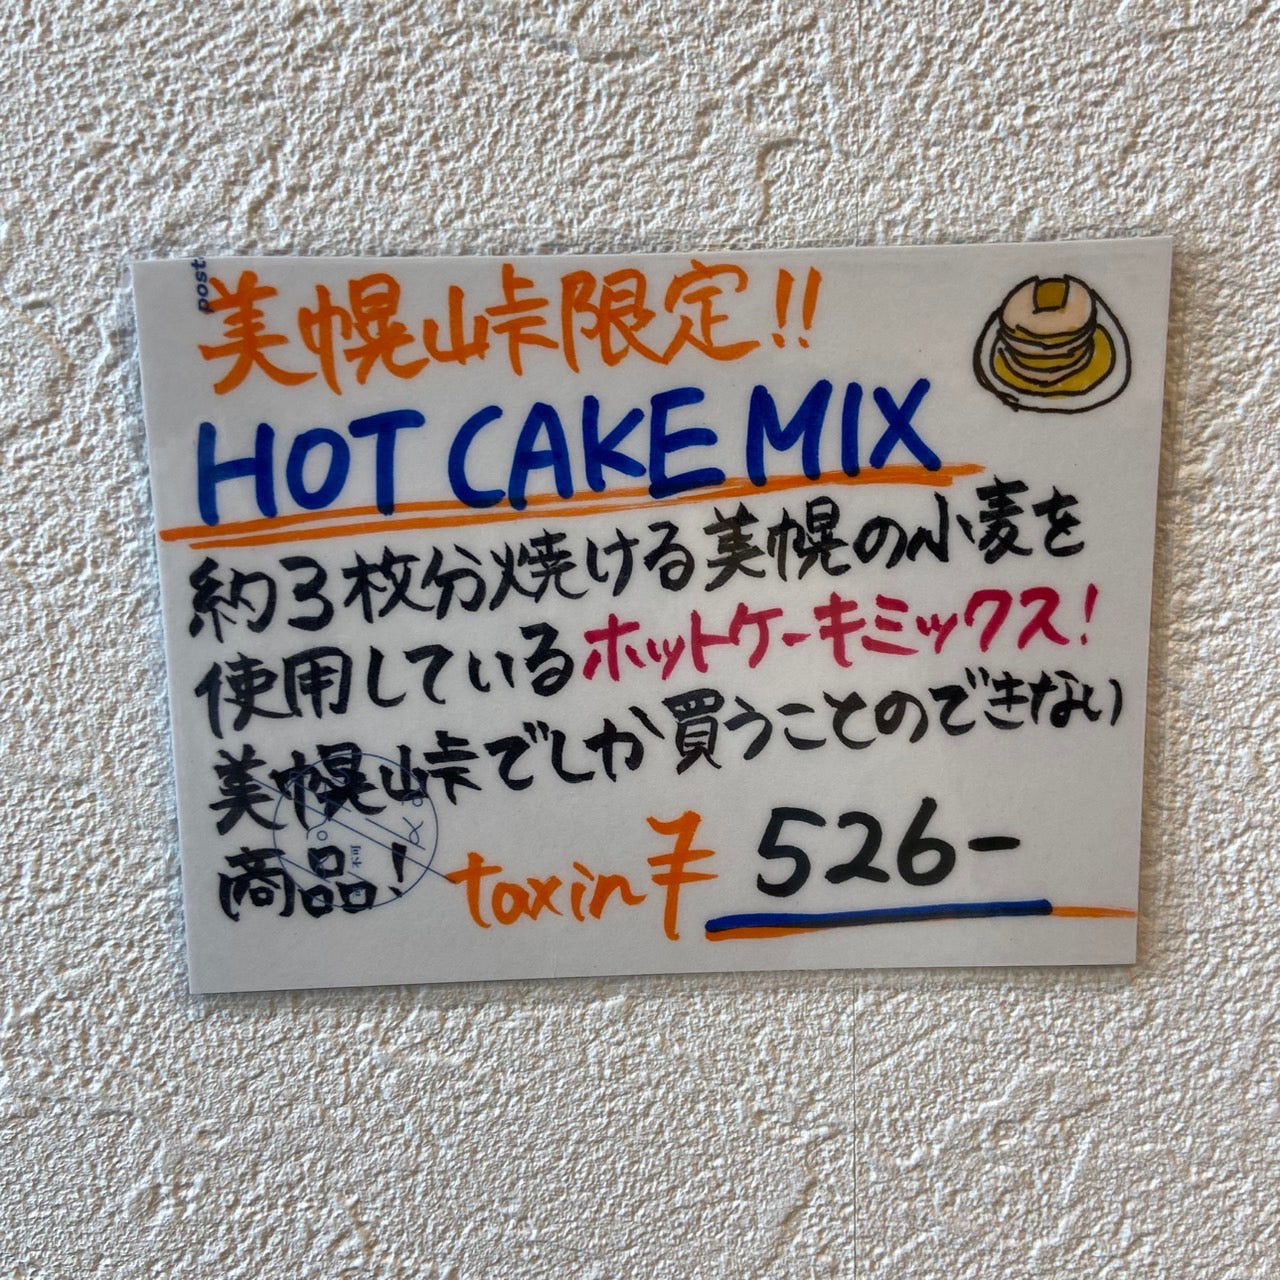 post
美幌峠限定!!
HOT CAKE MIX
約3枚分焼ける美幌の小麦を
使用しているホットケーキミックス!
美幌峠でしか買うことのできない
商品!
tax in ¥ 526-
不可